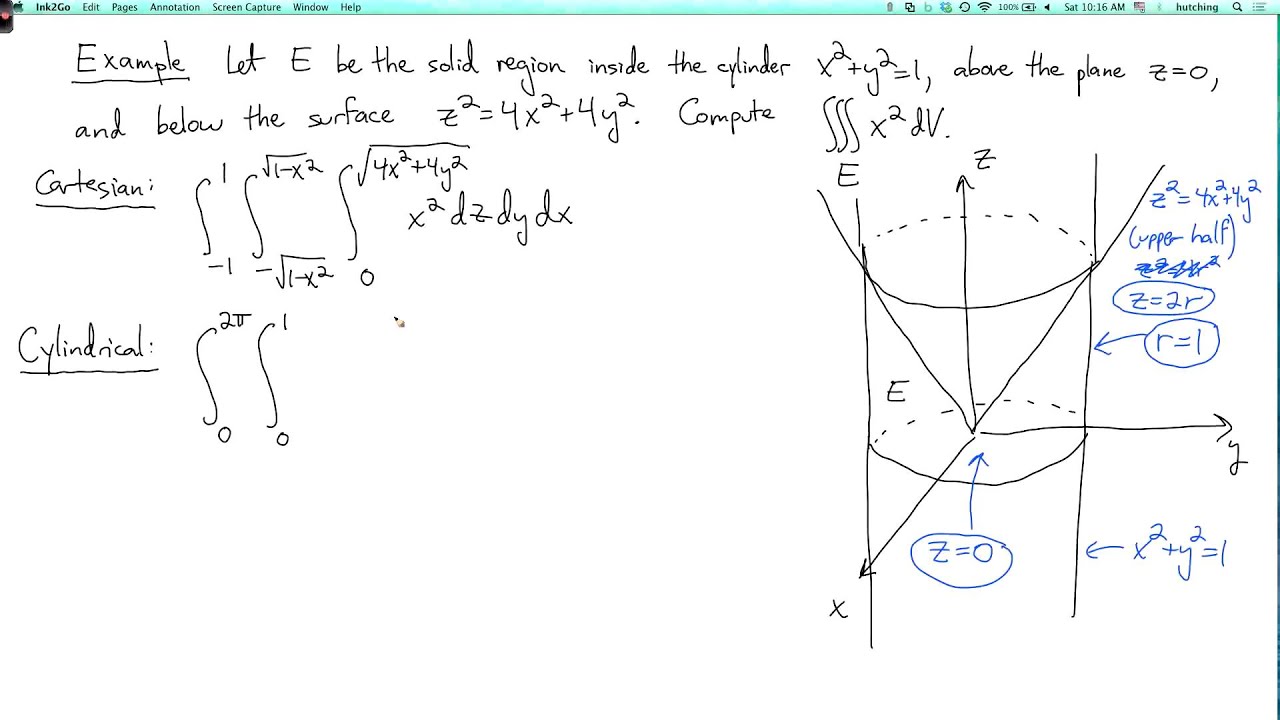 Ink2Go Edit Pages Annotation Screen Capture Window Help 100% Sat 10:16 AM hutching
Example Let E be the solid region inside the cylinder x²+y²=1, above the plane z=0,
and below the surface z²=4x²+4y². Compute ∭_E x² dV.
Cartesian: ∫_{-1}^{1} ∫_{-√(1-x²)}^{√(1-x²)} ∫_{0}^{√(4x²+4y²)} x² dz dy dx
Cylindrical: ∫_{0}^{2π} ∫_{0}^{1}
z
z²=4x²+4y²
(upper half)
z=2r
r=1
E
y
z=0
x²+y²=1
x